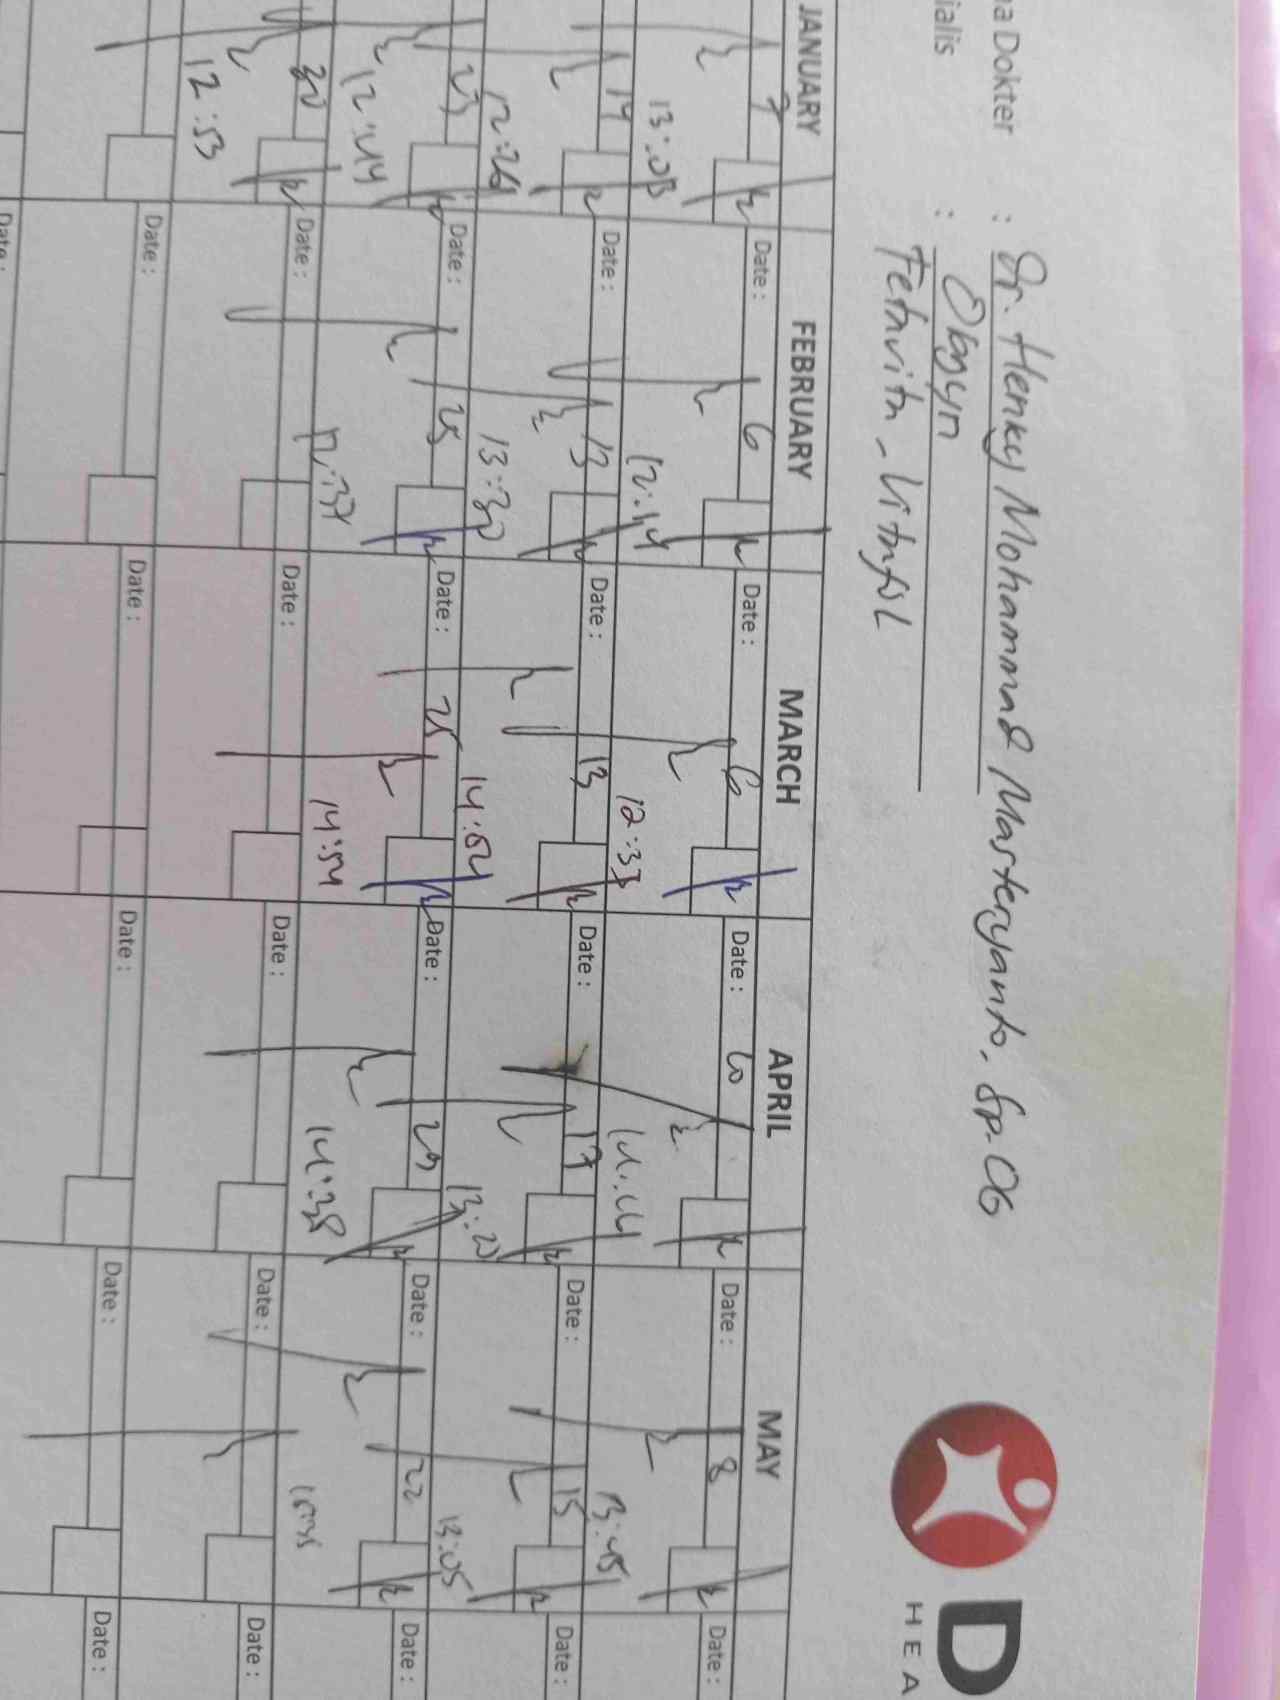 a Dokter : Dr. Henky Mohammad Masteryanto, Sp. OG
ialis : Obgyn
Fetavita - Vitafol
D
HEA
JANUARY FEBRUARY MARCH APRIL MAY
7 Date : 6 Date : 6 Date : 10 Date : 8 Date :
13:03 12:44 12:33 14:44 13:45
14 Date : 13 Date : 13 Date : 17 Date : 15 Date :
12:26 13:30 14:54 13:20 13:05
23 Date : 25 Date : 25 Date : 29 Date : 22 Date :
12:44 12:37 14:54 14:38
30 Date : Date : Date : Date : Date :
12:53
Date : Date : Date : Date : Date :
Date :